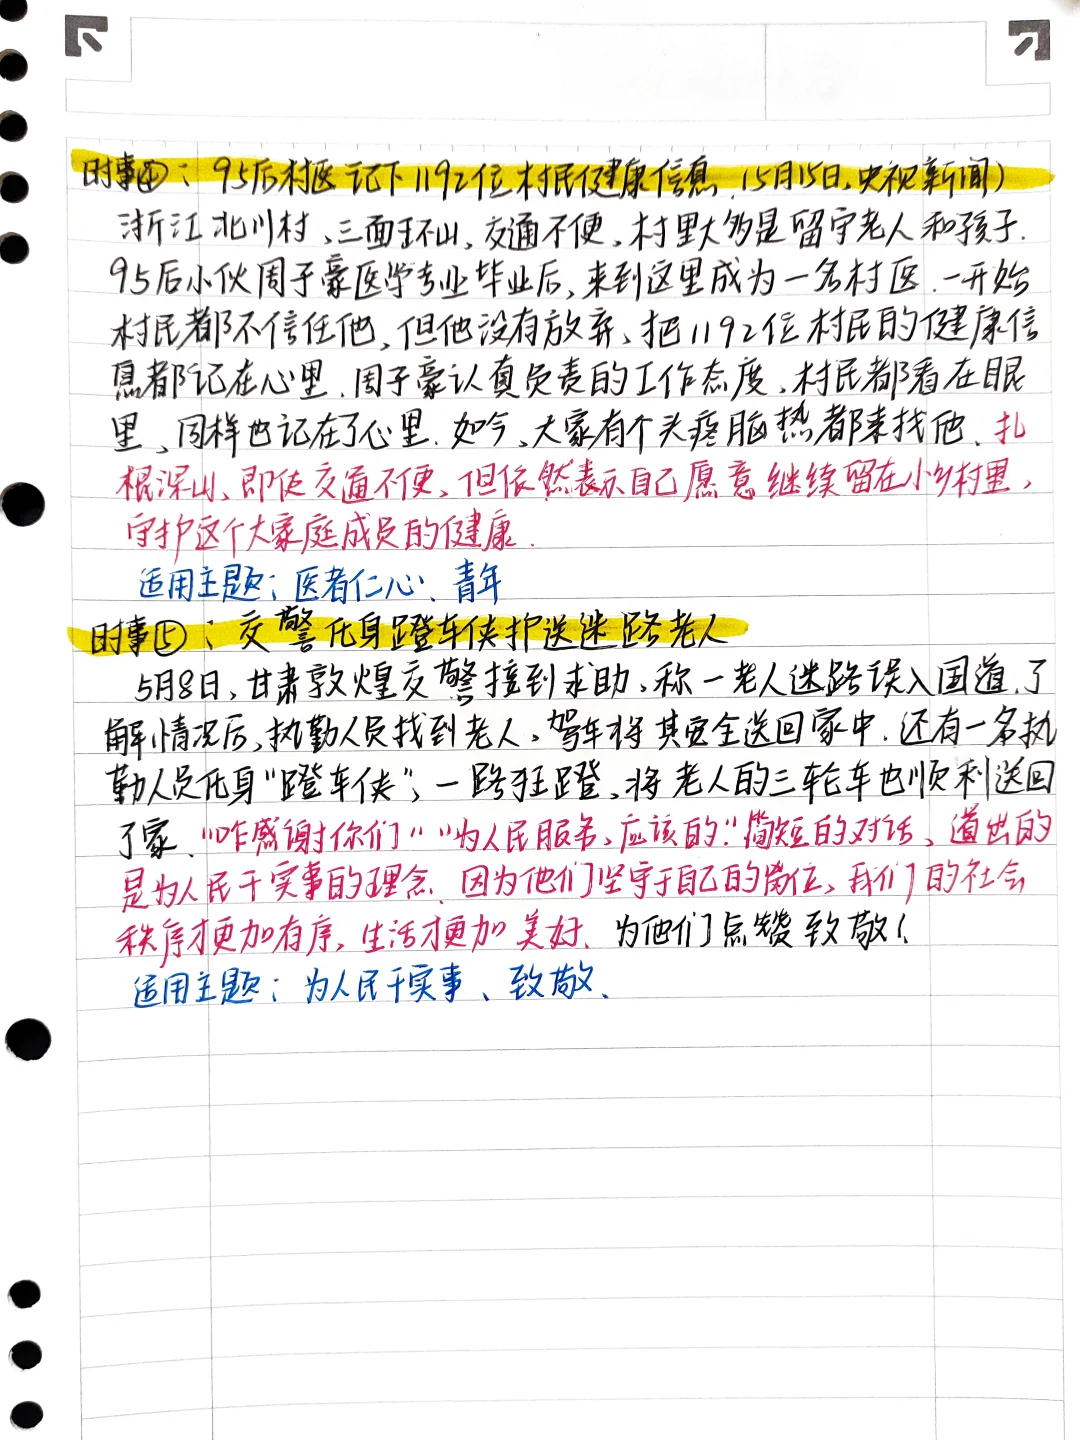 时事④：95后村医记下1192位村民健康信息.（5月15日.央视新闻）
浙江北川村、三面环山，交通不便、村里大多是留守老人和孩子.
95后小伙周子豪医学专业毕业后，来到这里成为一名村医.一开始
村民都不信任他，但他没有放弃、把1192位村民的健康信
息都记在心里.周子豪认真负责的工作态度、村民都看在眼
里、同样也记在了心里.如今、大家有个头疼脑热都来找他、扎
根深山、即使交通不便、但依然表示自己愿意继续留在小乡村里，
守护这个大家庭成员的健康.
适用主题：医者仁心；青年
时事⑤：交警化身蹬车侠护送迷路老人
5月8日，甘肃敦煌交警接到求助、称一老人迷路误入国道.了
解情况后，执勤人员找到老人、驾车将其安全送回家中.还有一名执
勤人员化身“蹬车侠”，一路狂蹬、将老人的三轮车也顺利送回
了家、“咋感谢你们”“为人民服务，应该的.”简短的对话、道出的
是为人民干实事的理念.因为他们坚守于自己的岗位，我们的社会
秩序才更加有序，生活才更加美好、为他们点赞致敬！
适用主题：为人民干实事、致敬、